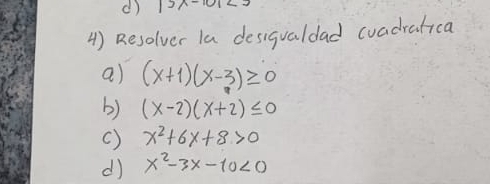 d) |5x-10|<5
4) Resolver la desigualdad cuadratica
a) (x+1)(x-3)≥0
b) (x-2)(x+2)≤0
c) x²+6x+8>0
d) x²-3x-10<0